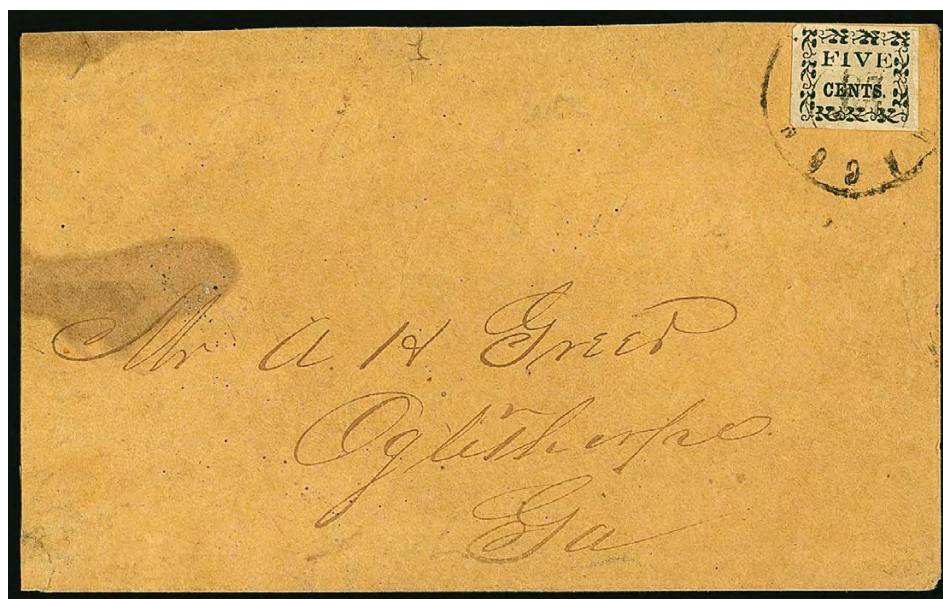 FIVE
CENTS.
Mr A. H
Oglethorpe
Ga